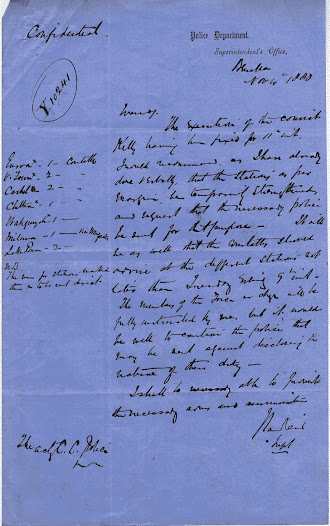 Confidential
Police Department.
Superintendent's Office,
Benalla
Nov 4th 1880
Y 10241
Memo
The execution of the convict
Kelly having been fixed for 11th inst
I would recommend, as I have already
done verbally, that the stations as per
margin, be temporarily strengthened,
and request that the necessary police
be sent for that purpose — It will
be as well that the Constables should
arrive at the different stations not
later than Tuesday evening 9th inst.
The members of the Force in charge will be
fully instructed by me, but it would
be well to caution the police that
may be sent against disclosing the
nature of their duty —
I shall be necessary able to furnish
the necessary arms and ammunition
1 — Constable
2 —
2 —
1 —
Wangaratta 1 —
1 —
2 —
The actg C. C. Police
Supt